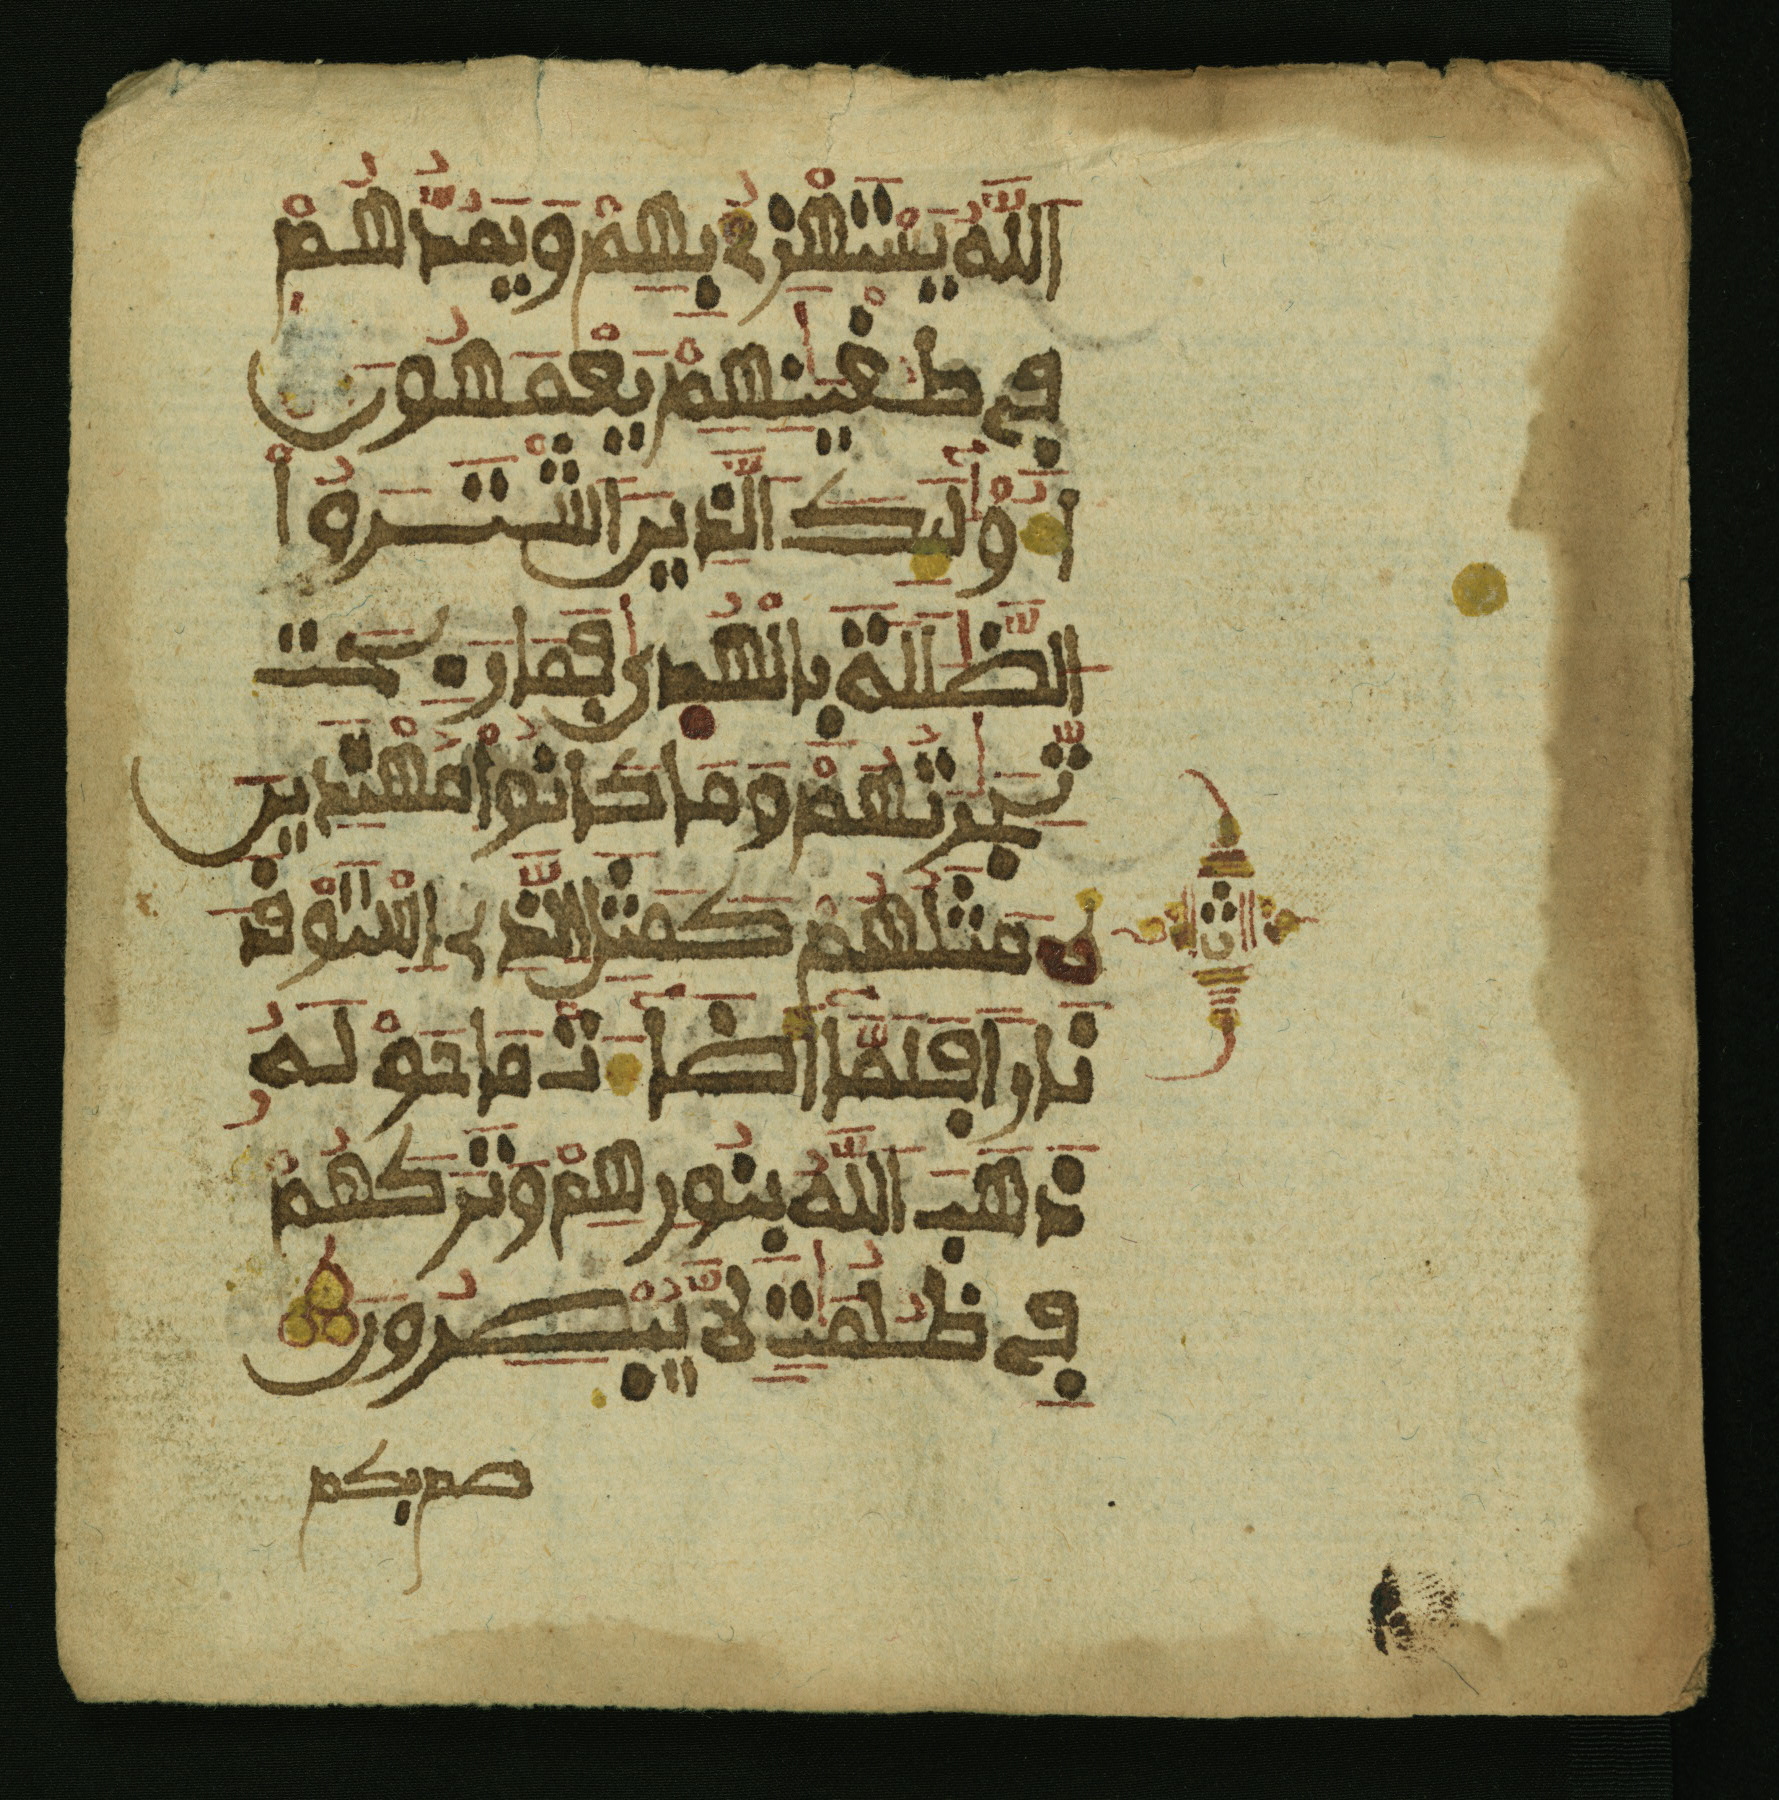 اَللَّهُ يَسْتَهْزِئُ بِهِمْ وَيَمُدُّهُمْ
فِي طُغْيَٰنِهِمْ يَعْمَهُونَ
أُوْلَٰٓئِكَ اَلَّذِينَ اَشْتَرَوُاْ
اَلضَّلَٰلَةَ بِالْهُدَىٰ فَمَا رَبِحَت
تِّجَٰرَتُهُمْ وَمَا كَانُواْ مُهْتَدِي
نَ مَثَلُهُمْ كَمَثَلِ اِلَّذِي اِسْتَوْقَدَ
نَاراً فَلَمَّآ أَضَآءَتْ مَا حَوْلَهُ
ذَهَبَ اَللَّهُ بِنُورِهِمْ وَتَرَكَهُمْ
فِي ظُلُمَٰتٍ لَّا يُبْصِرُونَ
صم بكم